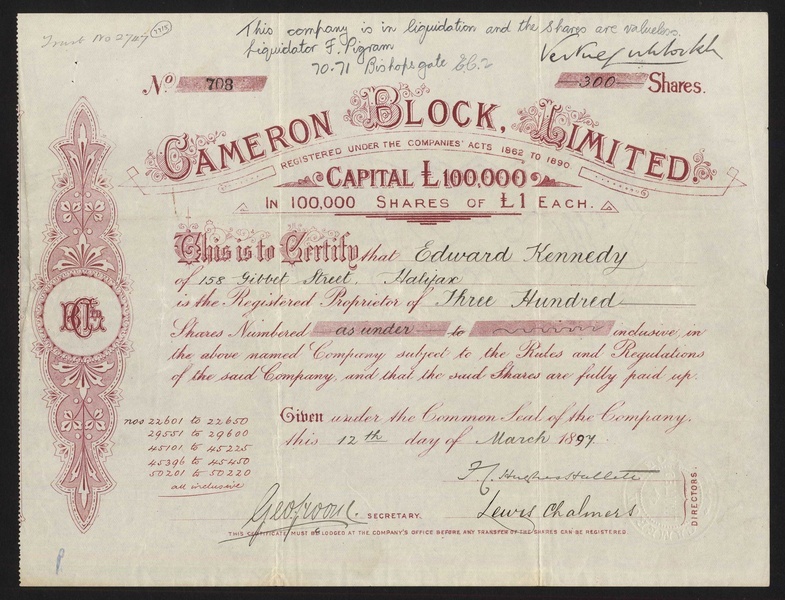 This company is in liquidation and the shares are valueless.
Trust No 2747
Liquidator F. Pigram
70-71 Bishopsgate E.C.2
No 708
300 Shares.
CAMERON BLOCK, LIMITED.
REGISTERED UNDER THE COMPANIES' ACTS 1862 TO 1890.
CAPITAL £100,000
IN 100,000 SHARES OF £1 EACH.
This is to Certify that Edward Kennedy
of 158 Gibbet Street, Halifax
is the Registered Proprietor of Three Hundred
Shares Numbered as under to inclusive, in
the above named Company subject to the Rules and Regulations
of the said Company, and that the said Shares are fully paid up.
Given under the Common Seal of the Company,
this 12th day of March 1897.
nos 22601 to 22650
29551 to 29600
45101 to 45225
45396 to 45450
50201 to 50220
all inclusive
F. Hughes Hallett
Lewis Chalmers
DIRECTORS.
SECRETARY.
THIS CERTIFICATE MUST BE LODGED AT THE COMPANY'S OFFICE BEFORE ANY TRANSFER OF THE SHARES CAN BE REGISTERED
P